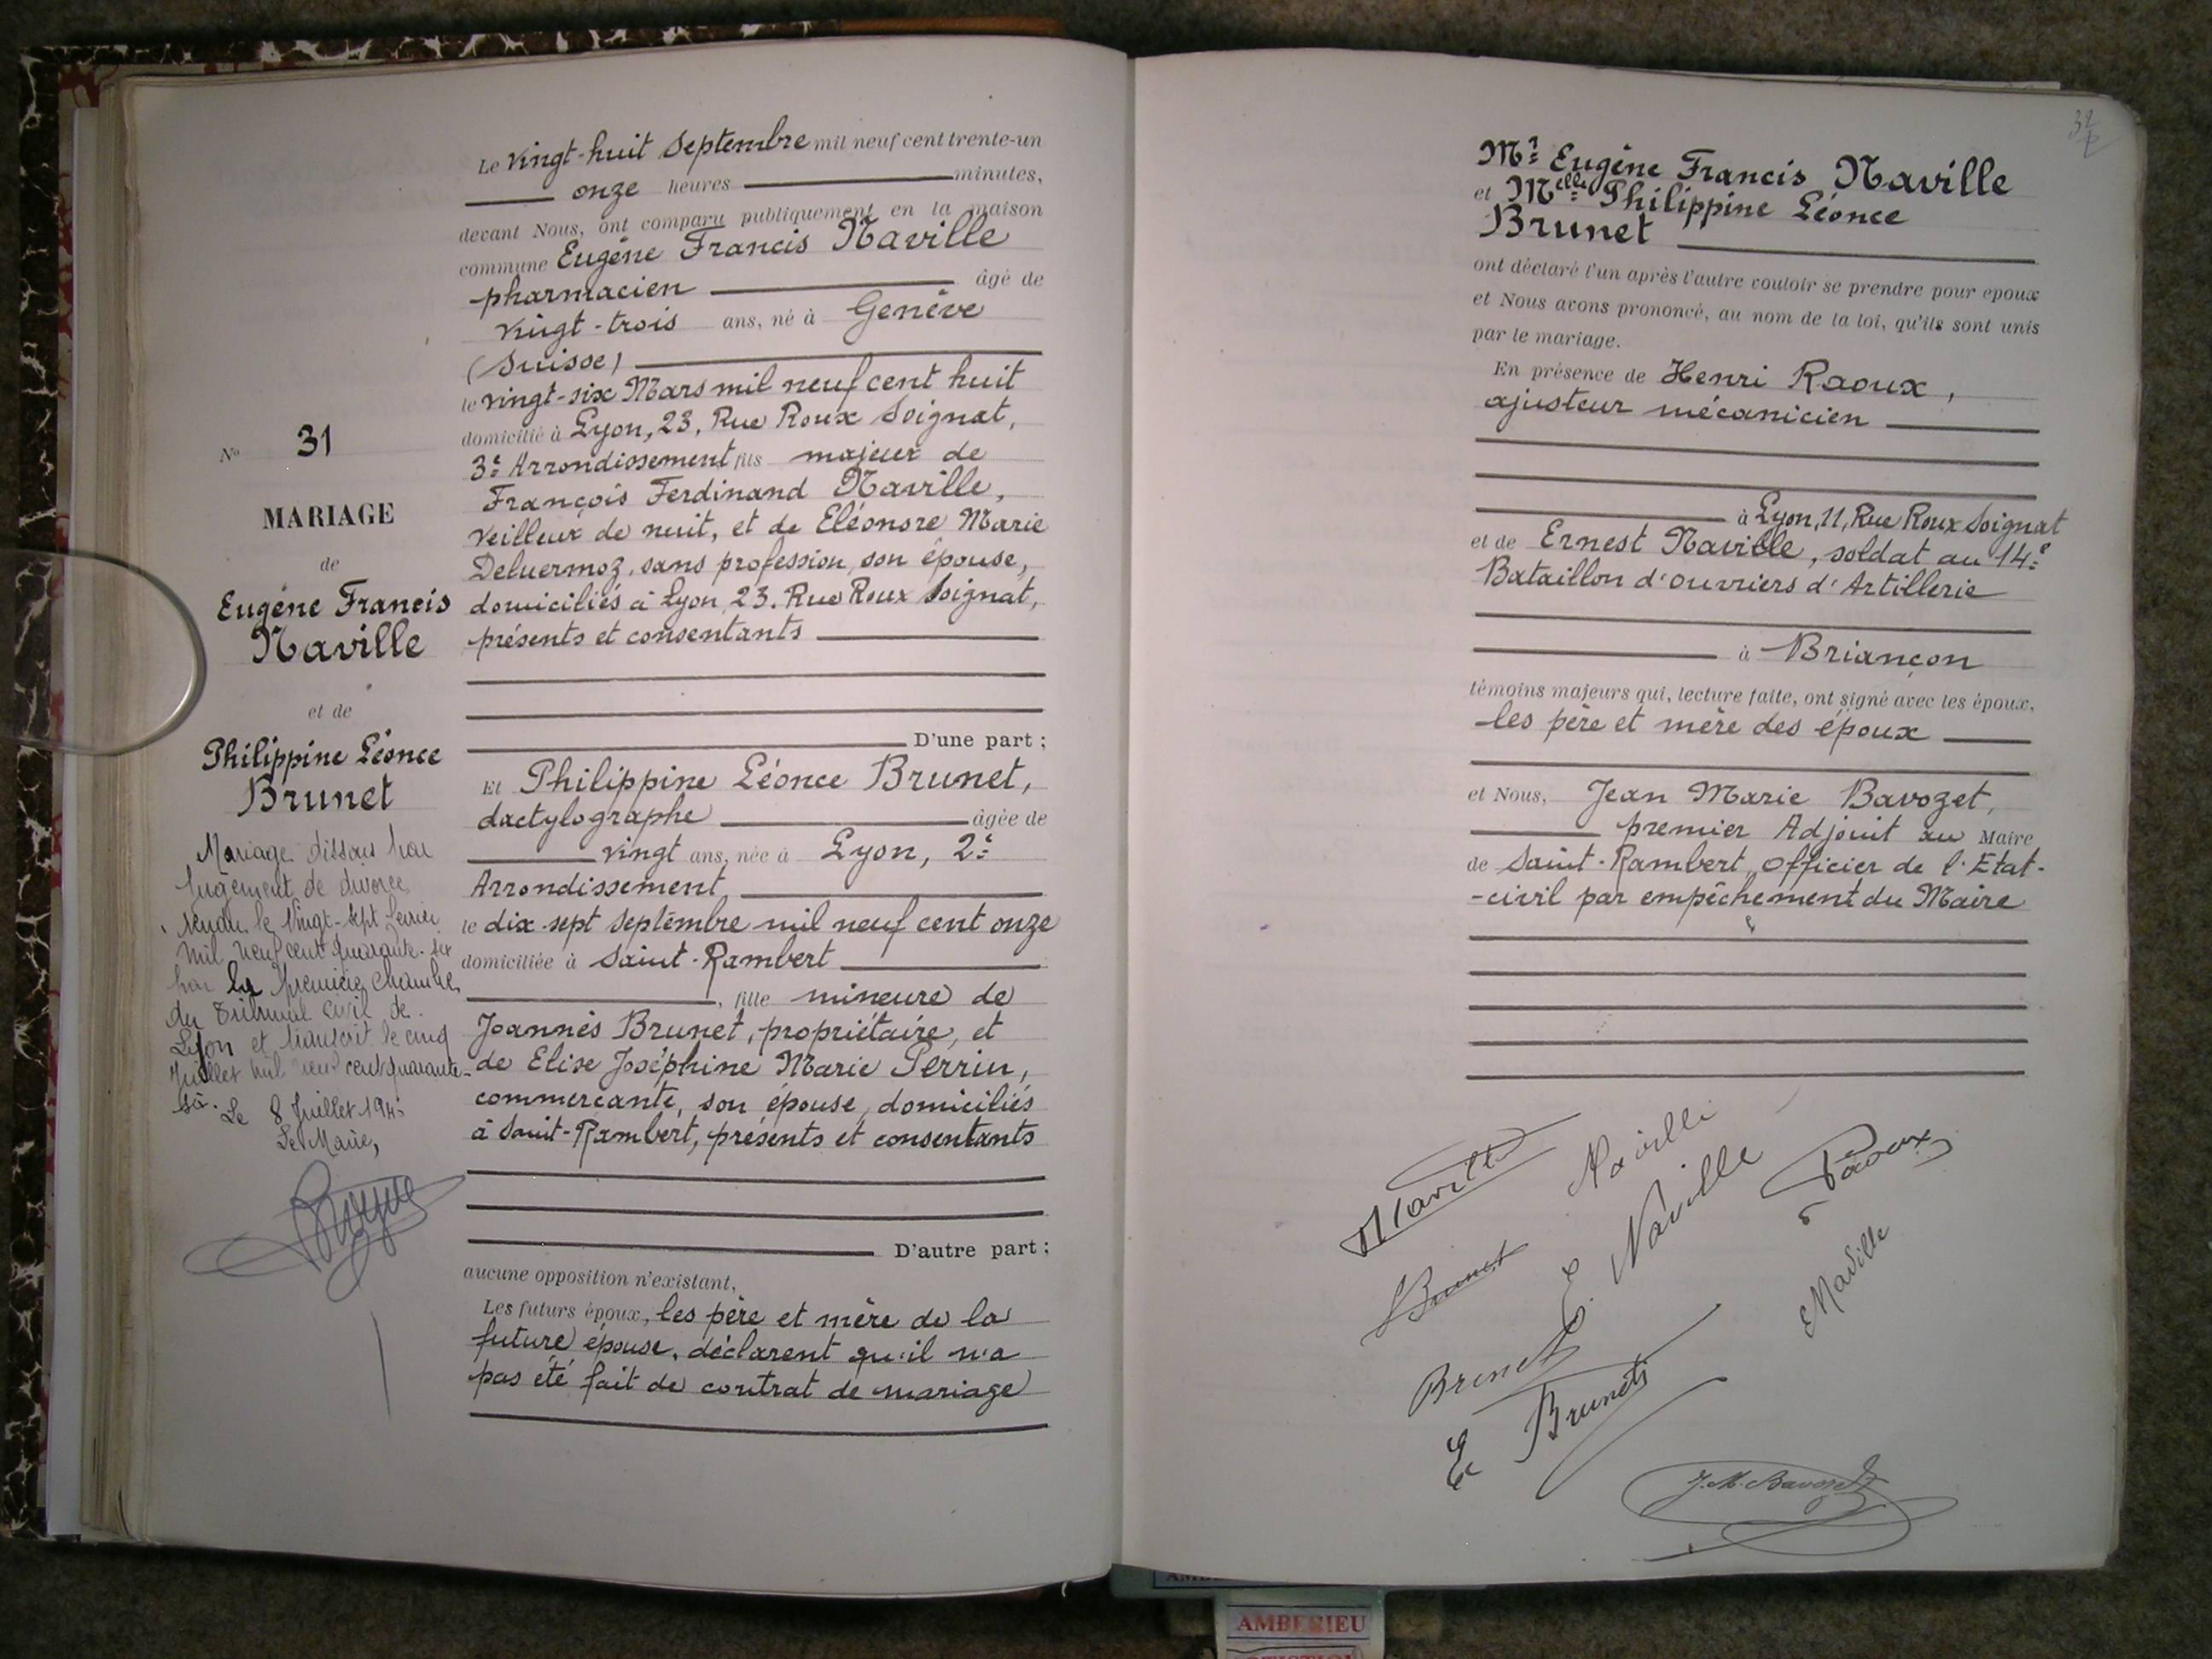 N° 31
MARIAGE
de
Eugène Francis
Naville
et de
Philippine Léonce
Brunet
Mariage dissous par
jugement de divorce
rendu le vingt-sept février
mil neuf cent quarante-six
par la première chambre
du Tribunal civil de
Lyon et transcrit le cinq
Juillet mil neuf cent quarante-
six. Le 8 Juillet 194
Le Maire,
Le vingt-huit Septembre mil neuf cent trente-un
onze heures minutes,
devant Nous, ont comparu publiquement en la maison
commune Eugène Francis Naville
pharmacien âgé de
vingt-trois ans, né à Genève
(Suisse)
le vingt-six Mars mil neuf cent huit
domicilié à Lyon, 23, Rue Roux Soignat,
3e Arrondissement fils majeur de
François Ferdinand Naville,
veilleur de nuit, et de Eléonore Marie
Deluermoz, sans profession, son épouse,
domiciliés à Lyon, 23. Rue Roux Soignat,
présents et consentants
D'une part ;
Et Philippine Léonce Brunet,
dactylographe âgée de
vingt ans, née à Lyon, 2e
Arrondissement,
le dix-sept septembre mil neuf cent onze
domiciliée à Saint-Rambert
, fille mineure de
Joannès Brunet, propriétaire, et
de Elise Joséphine Marie Perrin,
commerçante, son épouse, domiciliés
à Saint-Rambert, présents et consentants
D'autre part ;
aucune opposition n'existant,
Les futurs époux, les père et mère de la
future épouse, déclarent qu'il n'a
pas été fait de contrat de mariage
32
Mr Eugène Francis Naville
et Melle Philippine Léonce
Brunet
ont déclaré l'un après l'autre vouloir se prendre pour époux
et Nous avons prononcé, au nom de la loi, qu'ils sont unis
par le mariage.
En présence de Henri Raoux,
ajusteur mécanicien
à Lyon, 11, Rue Roux Soignat
et de Ernest Naville, soldat au 14e
Bataillon d'ouvriers d'Artillerie
à Briançon
témoins majeurs qui, lecture faite, ont signé avec les époux,
les père et mère des époux
et Nous, Jean Marie Bavozet,
premier Adjoint au Maire
de Saint-Rambert, Officier de l'Etat-
-civil par empêchement du Maire
Naville
Naville
Raoux
Brunet
E. Naville
Naville
Brunet
E Brunet
J. M. Bavozet
AMBERIEU